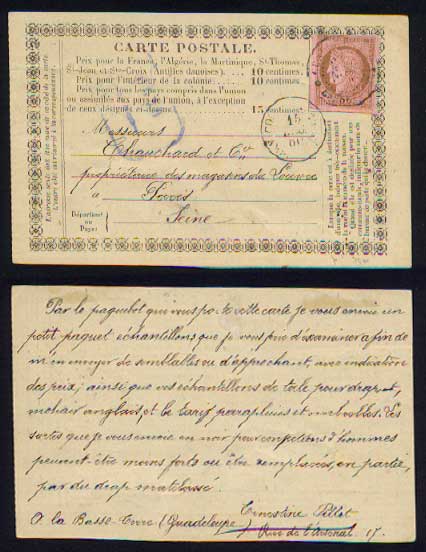 CARTE POSTALE.
Prix pour la France, l'Algérie, la Martinique, St-Thomas,
St-Jean et Ste-Croix (Antilles danoises). . . . 10 centimes.
Prix pour l'intérieur de la colonie. . . . 10 centimes.
Prix pour tous les pays compris dans l'union
ou assimilés aux pays de l'union, à l'exception
de ceux désignés ci-dessus. . . . 15 centimes.
Messieurs
Chauchard et Cie
propriétaires des magasins du Louvre
à Paris
Seine
Département
ou
Pays:
15
Par le paquebot qui vous porte cette carte je vous envoie un
petit paquet échantillons que je vous prie d'examiner afin de
m'en envoyer de semblables ou d'approchant, avec indication
des prix; ainsi que vos échantillons de toile pour drap et,
mohair anglais et le tarif parapluies et ombrelles. Les
sortes que je vous envoie en noir pour confections d'hommes
peuvent être moins forts ou être remplacés, en partie,
par du drap matelassé.
Ernestine Pillet
A la Basse-Terre (Guadeloupe) Rue de l'Arsenal 17.